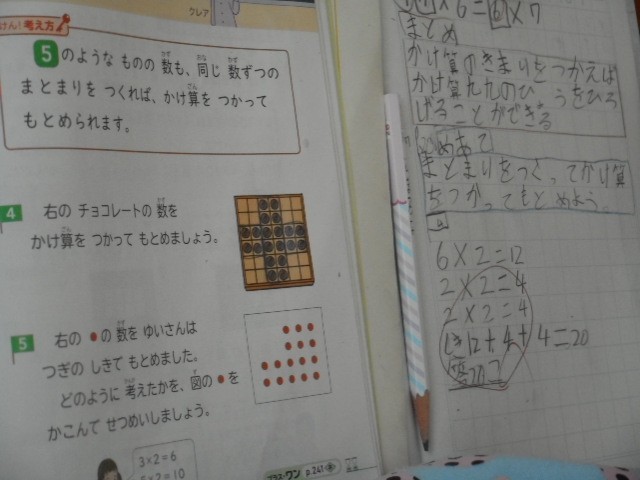 クレア
けん!考え方
5のような ものの 数も、同じ 数ずつの
まとまりを つくれば、かけ算を つかって
もとめられます。
4 右の チョコレートの 数を
かけ算を つかって もとめましょう。
5 右の ●の 数を ゆいさんは
つぎの しきで もとめました。
どのように 考えたかを、図の ●を
かこんで せつめいしましょう。
3×2=6
5×2=10
プラス・ワン p.241
×6=6×7
まとめ
かけ算のきまりをつかえば
かけ算九九のひょうをひろ
げることができる
めあて
まとまりをつくってかけ算
をつかってもとめよう。
6×2=12
2×2=4
2×2=4
しき12+4+4=20
答20こ